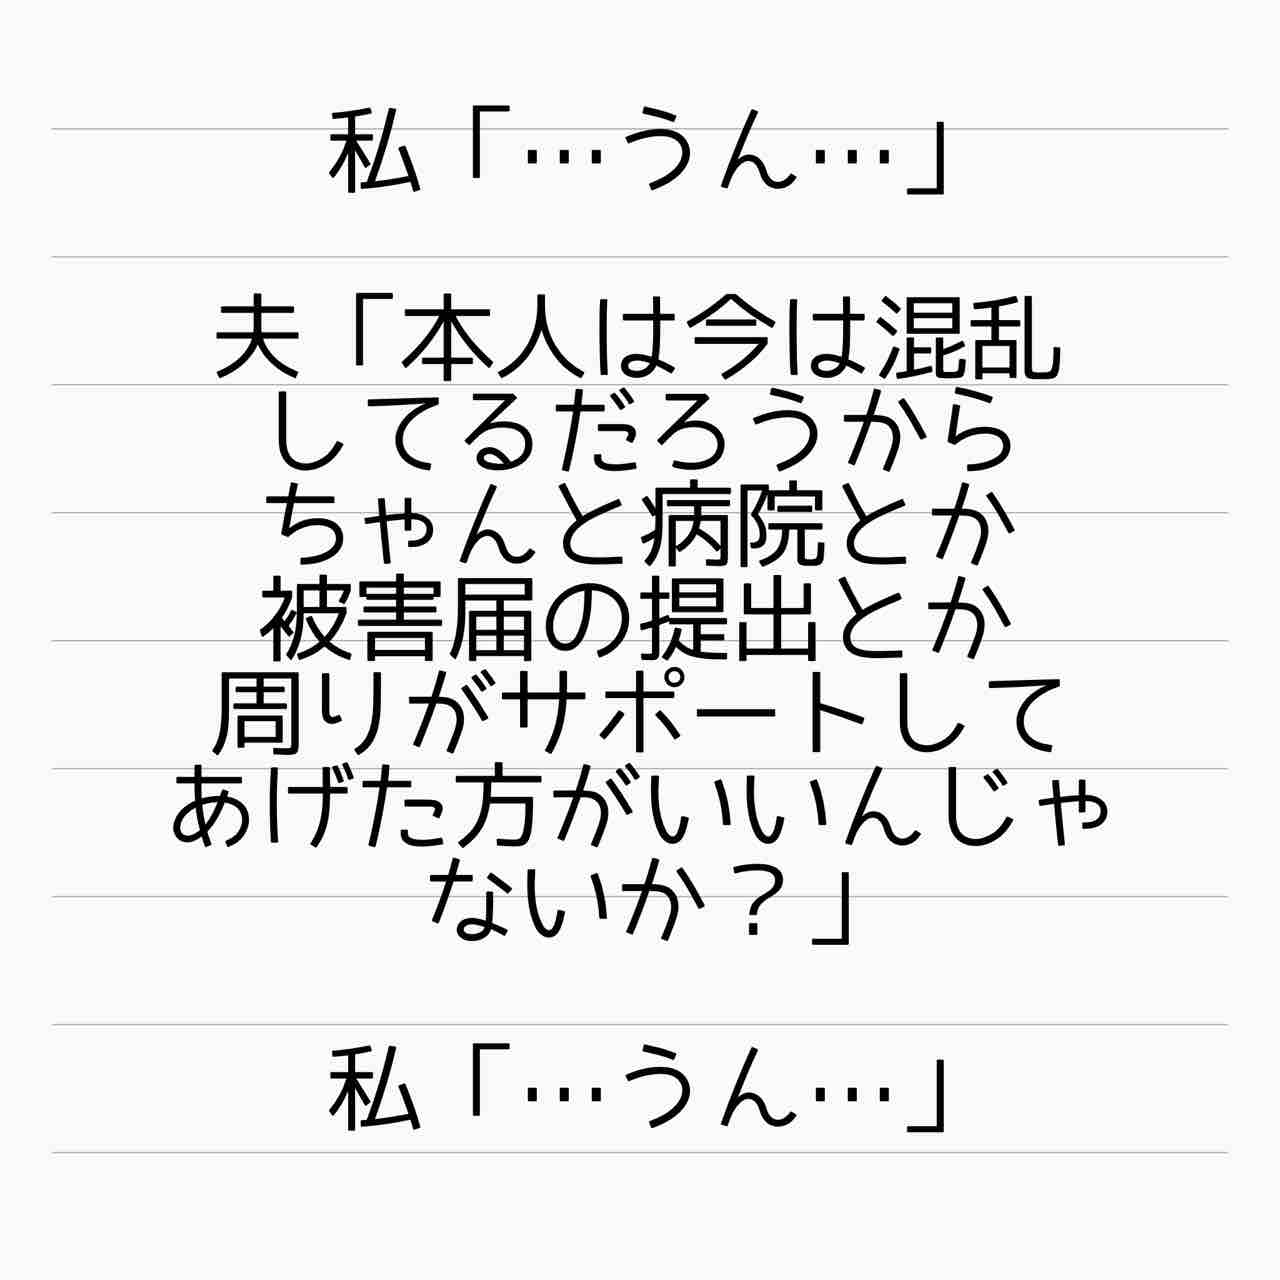 私「…うん…」
夫「本人は今は混乱
してるだろうから
ちゃんと病院とか
被害届の提出とか
周りがサポートして
あげた方がいいんじゃ
ないか？」
私「…うん…」